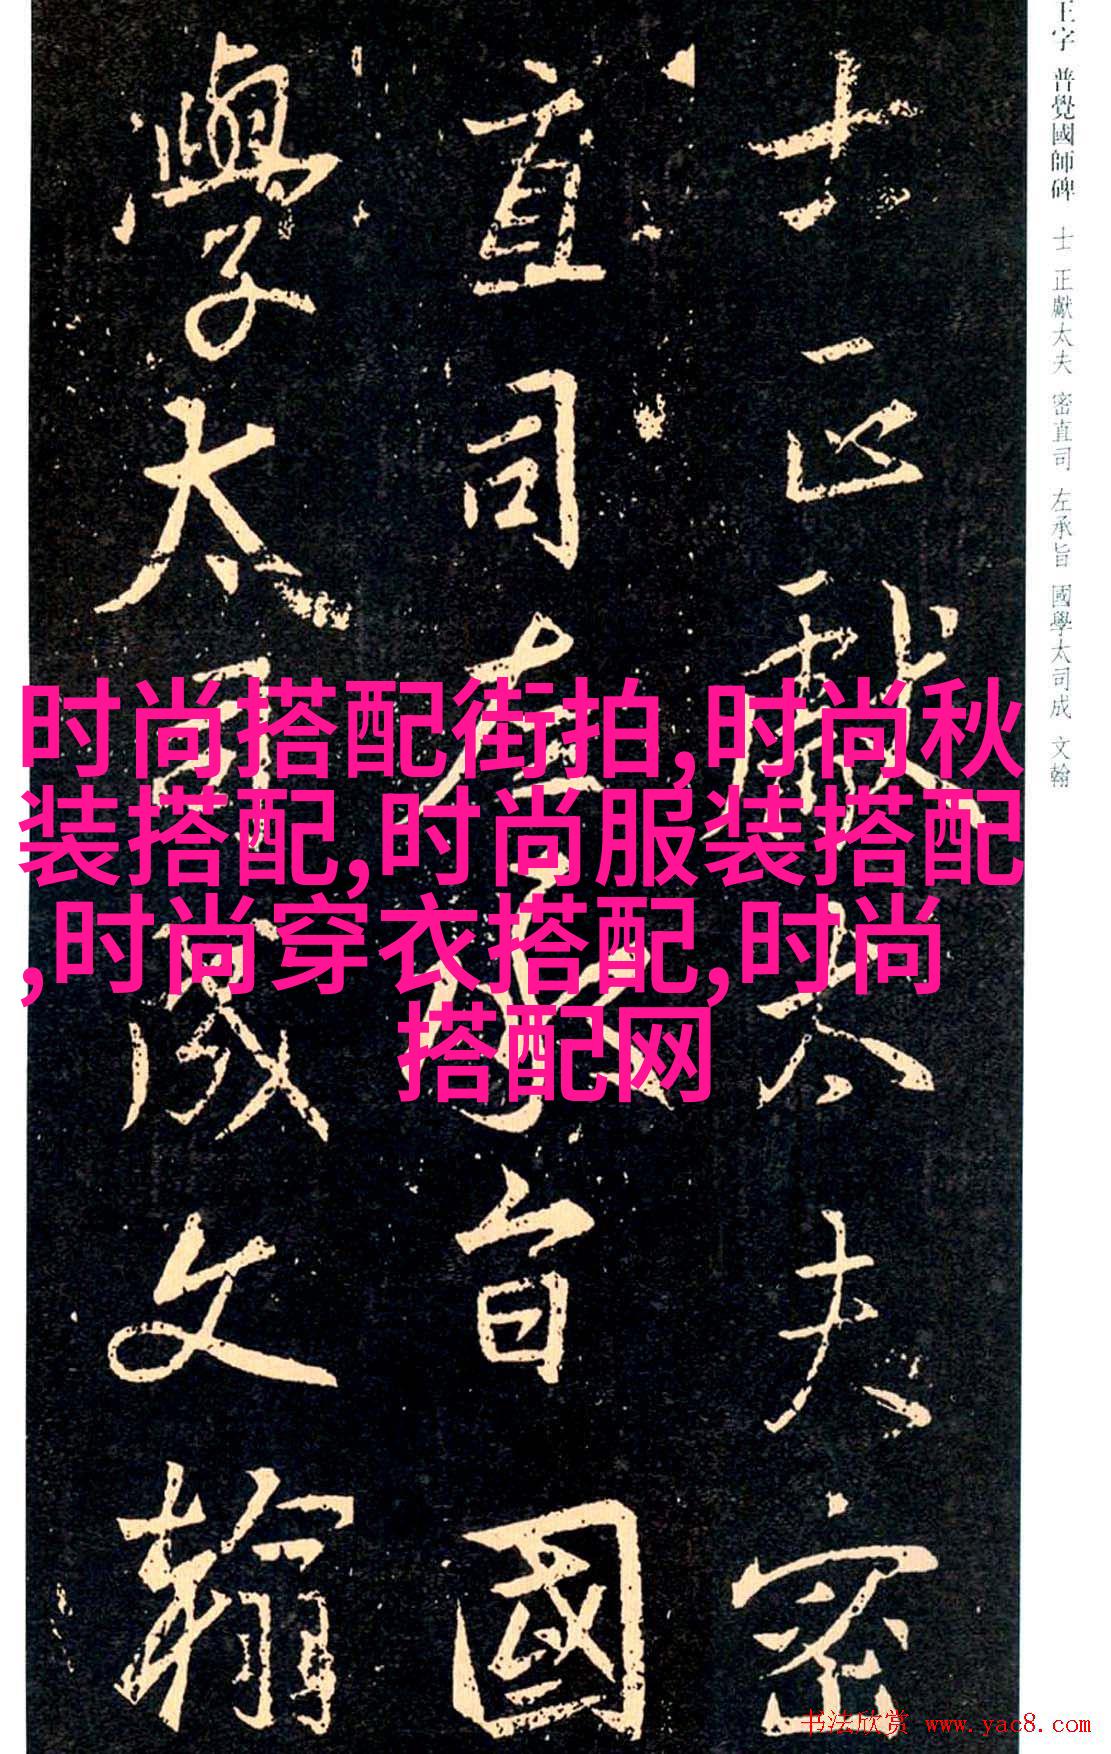 王字 普覺國師碑 士 正獻太夫 密直司 左承旨 國學太司成 文翰
士正獻太夫密
直司左承旨國
學太司成文翰
时尚搭配街拍,时尚秋
装搭配,时尚服装搭配
,时尚穿衣搭配,时尚
搭配网
书法欣赏 www.yac8.com